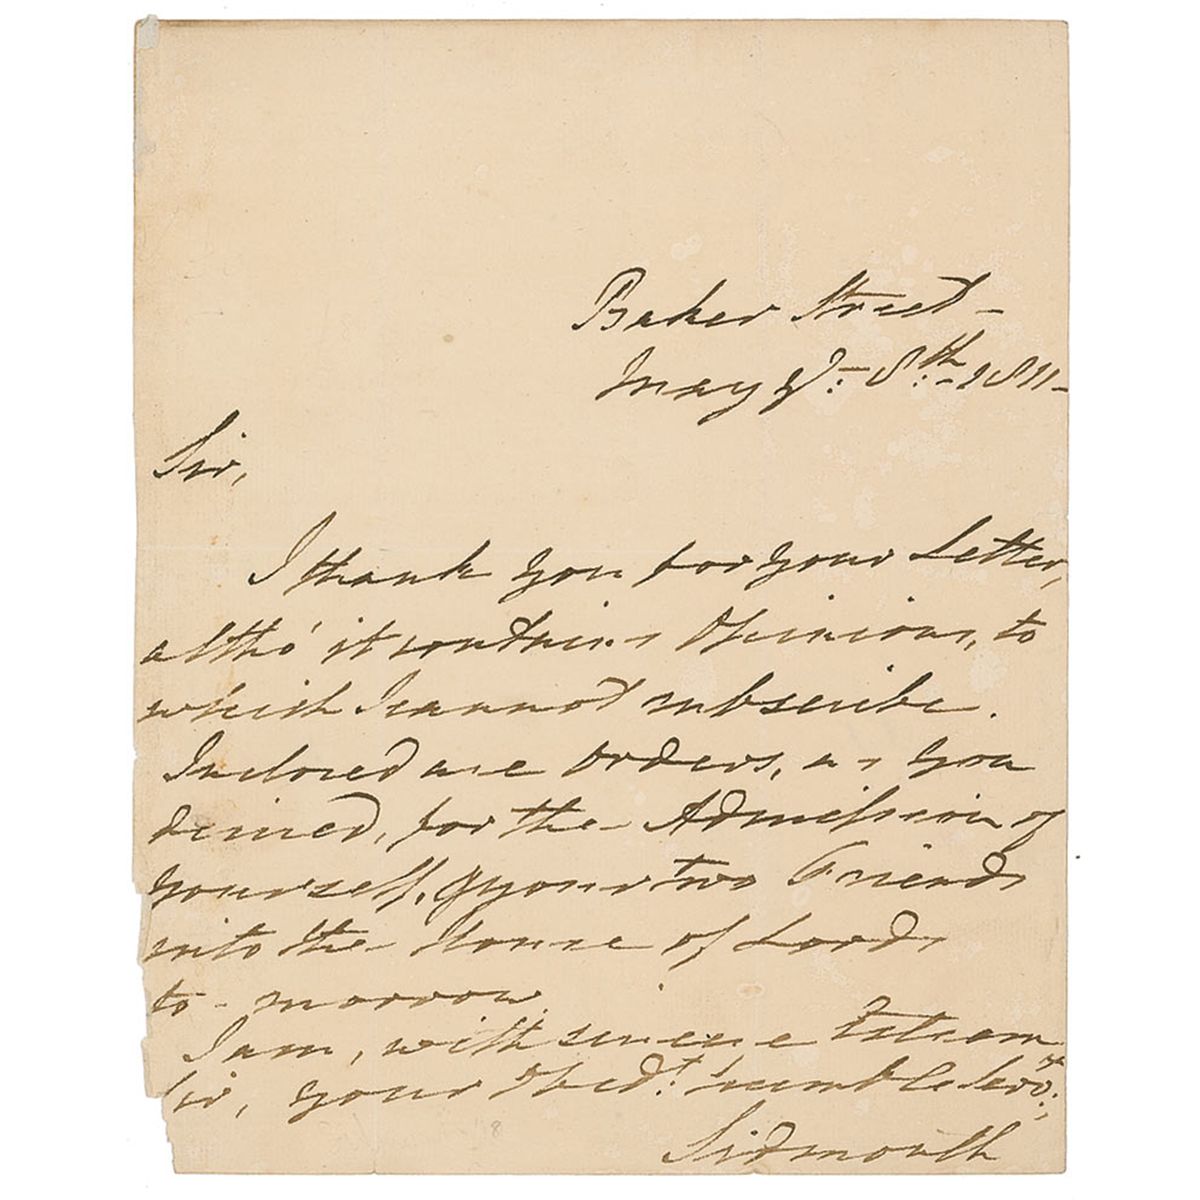 Baker Street -
May ye. 8th. 1811 -
Sir,
I thank you for your Letter,
altho' it contains Opinions, to
which I cannot subscribe.
Inclosed are Orders, as you
desired, for the Admission of
yourself, & your two Friends
into the House of Lords
to-morrow.
I am, with sincere Esteem
Sir, your Obedt. humble Servt.,
Sidmouth
8